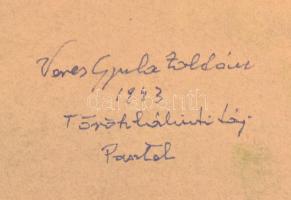 Veres Gyula Zoltán
1943
Törökbálinti táj
Pasztel